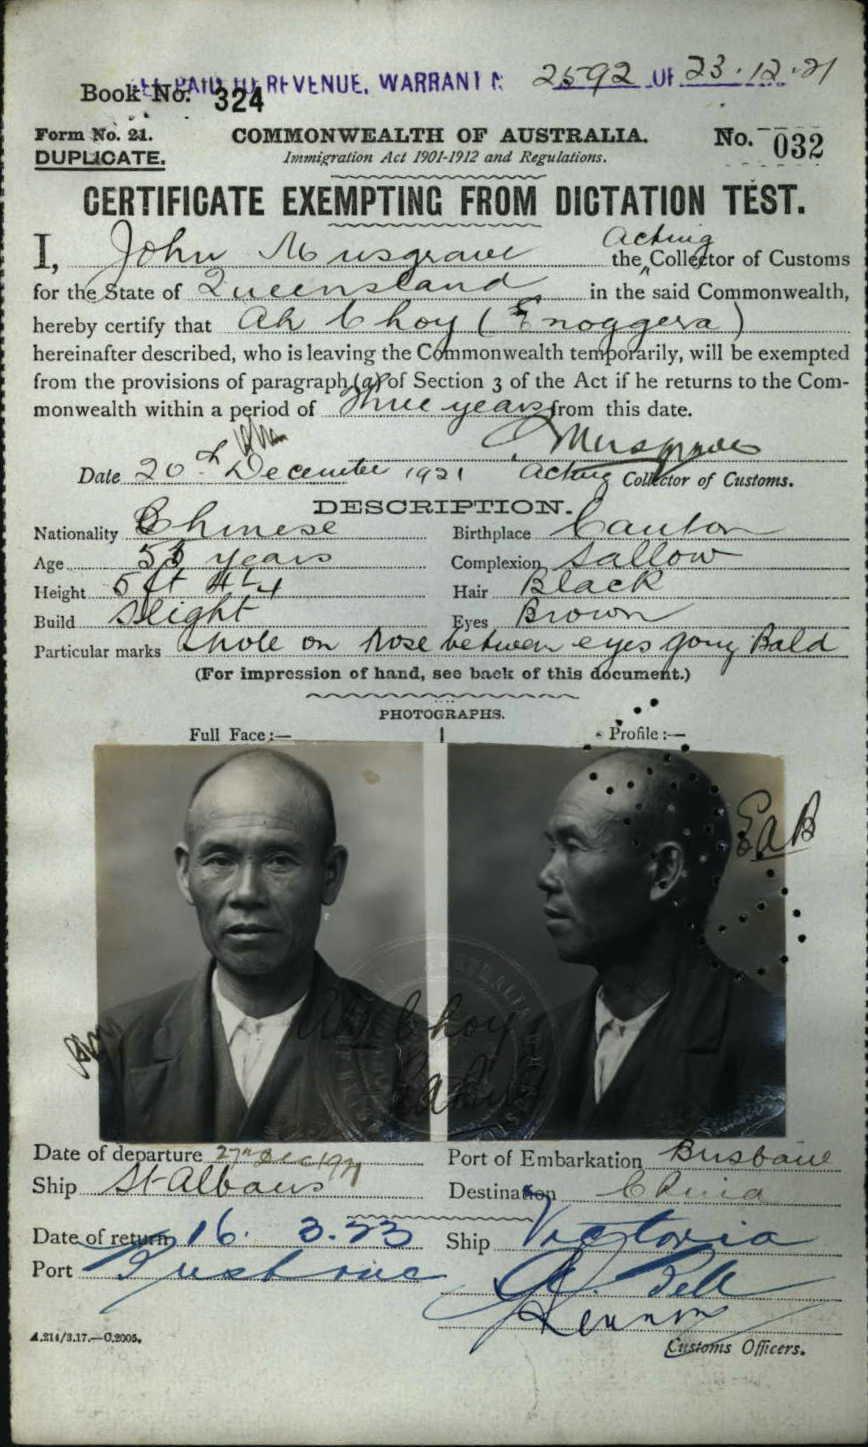 PAID TO REVENUE. WARRANT No. 2592 OF 23.12.21
Book No. 324
Form No. 21. COMMONWEALTH OF AUSTRALIA. No. 032
DUPLICATE. Immigration Act 1901-1912 and Regulations.
CERTIFICATE EXEMPTING FROM DICTATION TEST.
I, John Musgrave the Acting Collector of Customs
for the State of Queensland in the said Commonwealth,
hereby certify that Ah Choy (Enoggera)
hereinafter described, who is leaving the Commonwealth temporarily, will be exempted
from the provisions of paragraph (a) of Section 3 of the Act if he returns to the Com-
monwealth within a period of Three years from this date.
J Musgrave
Date 20th December 1921 Acting Collector of Customs.
DESCRIPTION.
Nationality Chinese Birthplace Canton
Age years Complexion Sallow
Height 5 ft 4 1/4 Hair Black
Build Slight Eyes Brown
Particular marks mole on nose between eyes going Bald
(For impression of hand, see back of this document.)
PHOTOGRAPHS.
Full Face:— Profile:—
EAB
Ah Choy
Date of departure 27th Dec 1921 Port of Embarkation Brisbane
Ship St Albans Destination China
Date of return 16. 3. 23 Ship Victoria
Port Brisbane Bell
Lennon
A.214/3.17.—C.2005. Customs Officers.